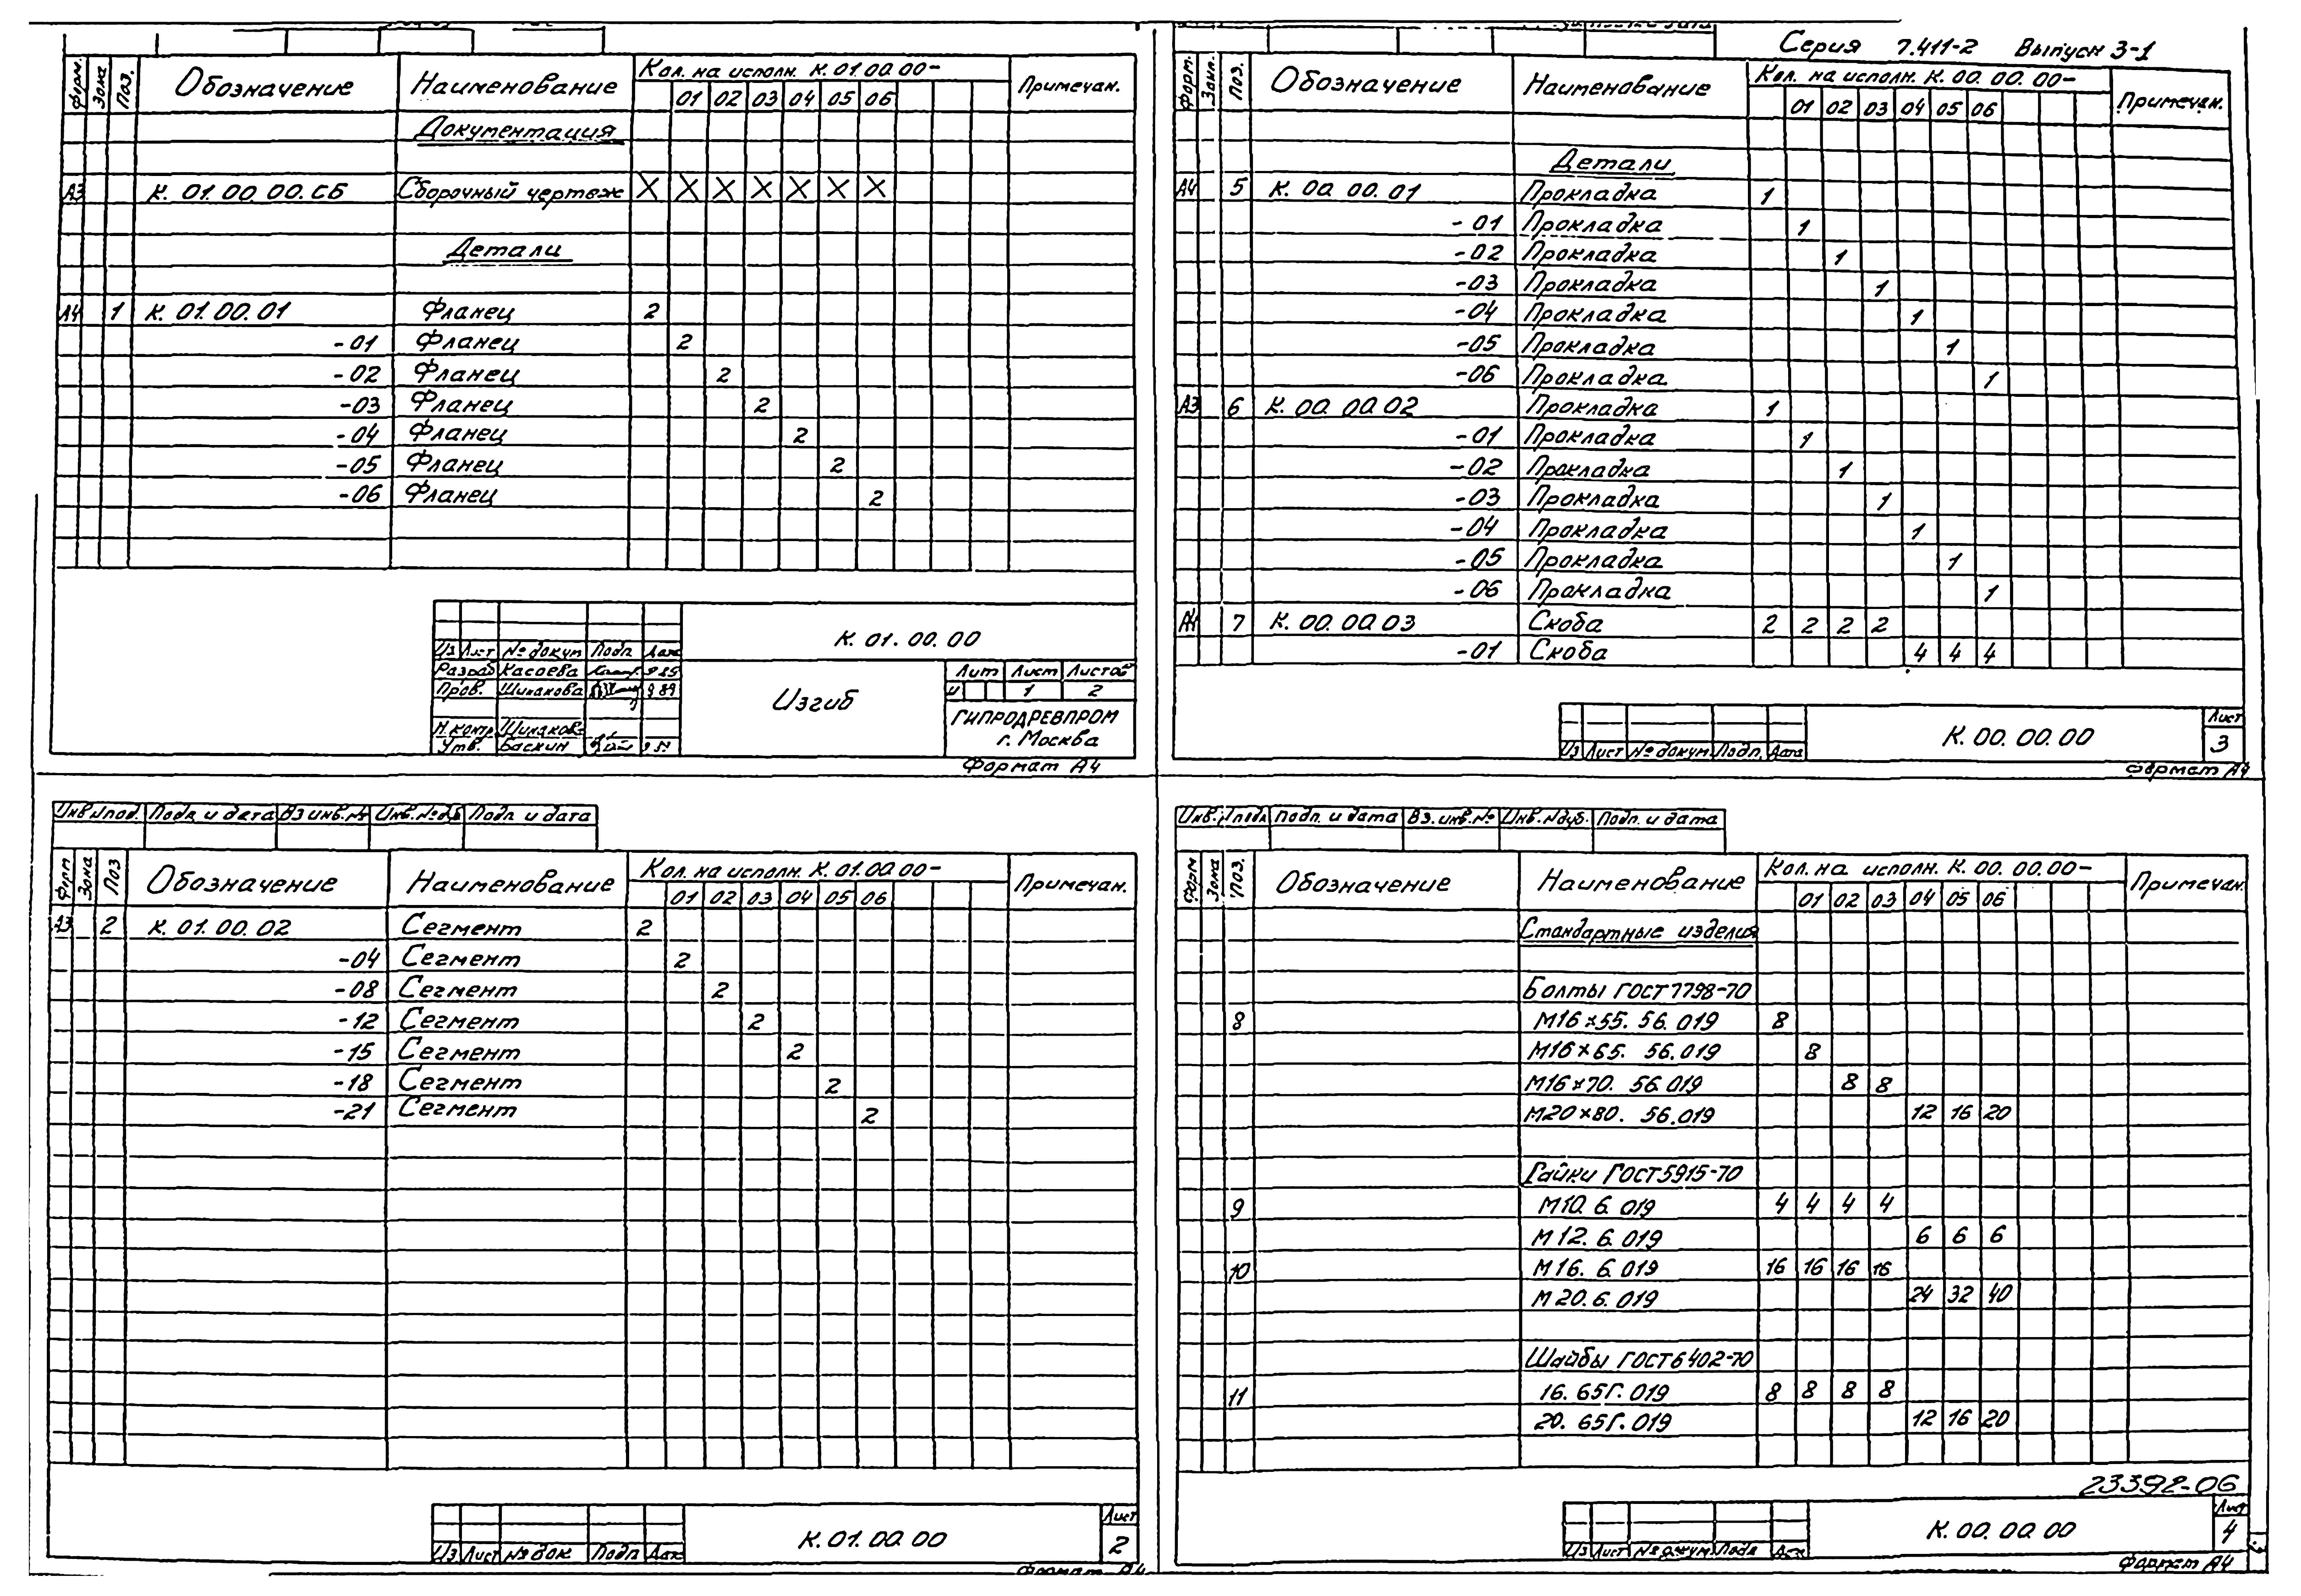 Форм. Зона Поз. Обозначение Наименование Кол. на исполн. К. 01.00.00- Примечан.
01 02 03 04 05 06
Документация
А3 К. 01.00.00.СБ Сборочный чертеж X X X X X X X
Детали
А4 1 К. 01.00.01 Фланец 2
-01 Фланец 2
-02 Фланец 2
-03 Фланец 2
-04 Фланец 2
-05 Фланец 2
-06 Фланец 2
К. 01.00.00
Из Лист № докум Подп Дата
Разраб Касаева
Пров. Шишакова 9 89
Изгиб
Лит Лист Листов
И 1 2
Н.контр
Утв. Баскин
ГИПРОДРЕВПРОМ
г. Москва
Формат А4
Серия 7.411-2 Выпуск 3-1
Форм. Зона. Поз. Обозначение Наименование Кол. на исполн. К. 00.00.00- Примечан.
01 02 03 04 05 06
Детали
А4 5 К. 00.00.01 Прокладка 1
-01 Прокладка 1
-02 Прокладка 1
-03 Прокладка 1
-04 Прокладка 1
-05 Прокладка 1
-06 Прокладка 1
А3 6 К. 00.00.02 Прокладка 1
-01 Прокладка 1
-02 Прокладка 1
-03 Прокладка 1
-04 Прокладка 1
-05 Прокладка 1
-06 Прокладка 1
А4 7 К. 00.00.03 Скоба 2 2 2 2
-01 Скоба 4 4 4
Из Лист № докум. Подп. Дата
К. 00.00.00
Лист
3
Формат А4
Инв.№подл. Подп и дата Вз инв.№ Инв.№дуб Подп. и дата
Форм Зона Поз Обозначение Наименование Кол. на исполн. К. 01.00.00- Примечан.
01 02 03 04 05 06
А3 2 К. 01.00.02 Сегмент 2
-04 Сегмент 2
-08 Сегмент 2
-12 Сегмент 2
-15 Сегмент 2
-18 Сегмент 2
-21 Сегмент 2
Из Лист № док Подп Дат
К. 01.00.00
Лист
2
Формат А4
Инв.№подл Подп. и дата Вз. инв.№ Инв.№дуб. Подп. и дата
Форм Зона Поз. Обозначение Наименование Кол. на исполн. К. 00.00.00- Примечан.
01 02 03 04 05 06
Стандартные изделия
Болты ГОСТ 7798-70
8 М16×55. 56.019 8
М16×65. 56.019 8
М16×70. 56.019 8 8
М20×80. 56.019 12 16 20
Гайки ГОСТ 5915-70
9 М10. 6. 019 4 4 4 4
М12. 6. 019 6 6 6
10 М16. 6. 019 16 16 16 16
М20. 6. 019 24 32 40
Шайбы ГОСТ 6402-70
11 16. 65Г. 019 8 8 8 8
20. 65Г. 019 12 16 20
23392-06
Из Лист № докум Подп Дата
К. 00.00.00
Лист
4
Формат А4